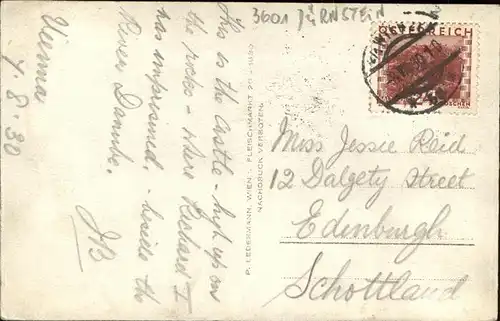 3601 DÜRNSTEIN
Vienna
7.8.30
This is the Castle - high up on
the rocks - where Richard I
was imprisoned, - beside the
River Danube.
JB
P. LEDERMANN, WIEN I. FLEISCHMARKT 20 - 1930
NACHDRUCK VERBOTEN.
ÖSTERREICH
GROSCHEN
Miss Jessie Reid
12 Dalgety Street
Edinburgh
Schottland